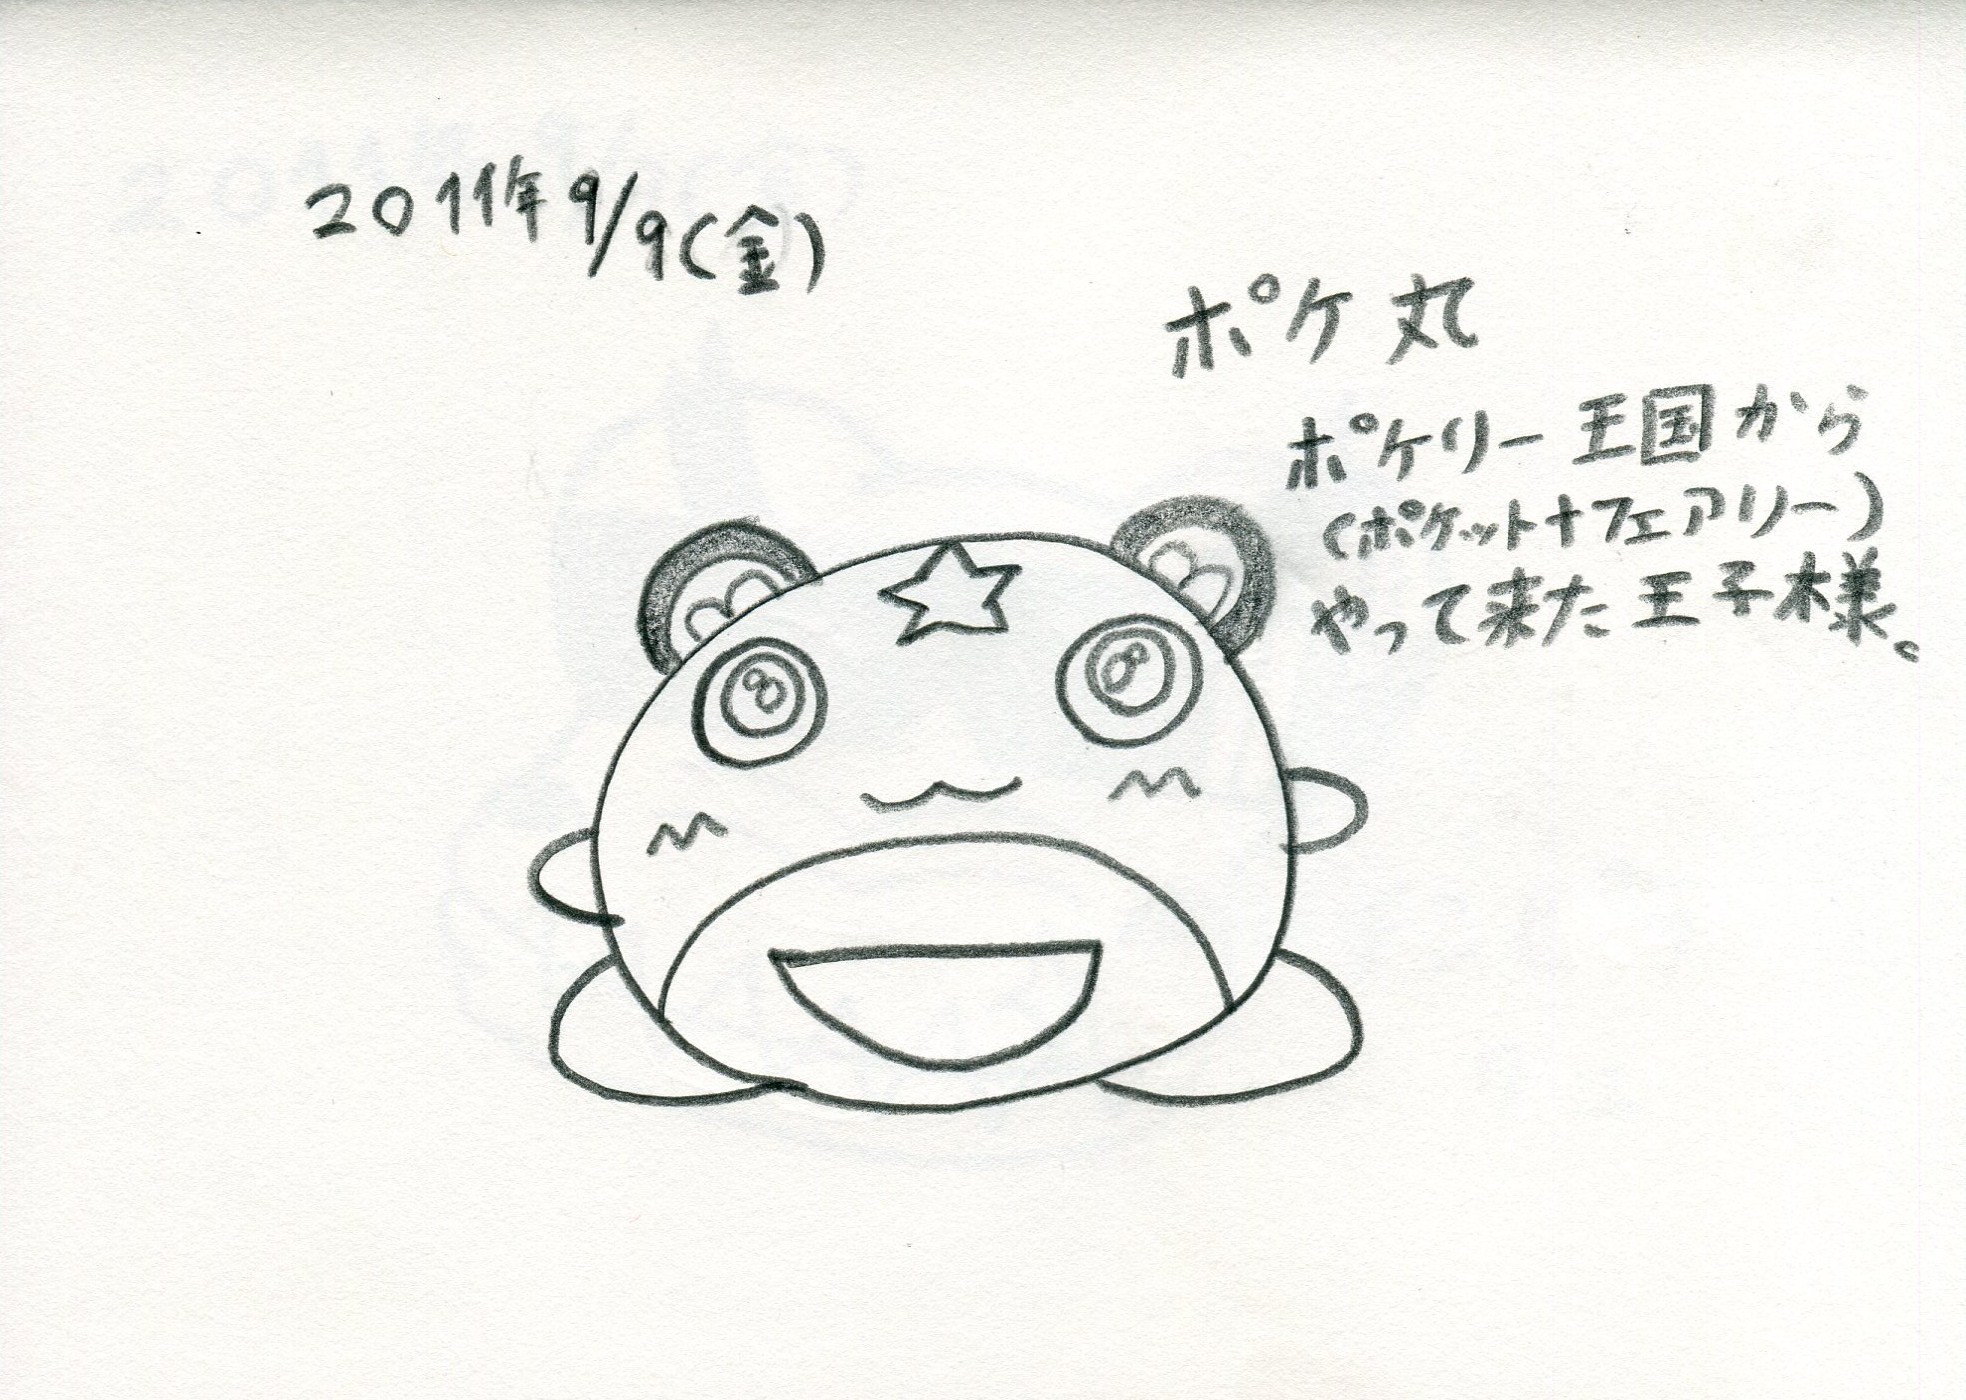 2011年9/9(金)
ポケ丸
ポケリー王国から
(ポケット+フェアリー)
やって来た王子様。